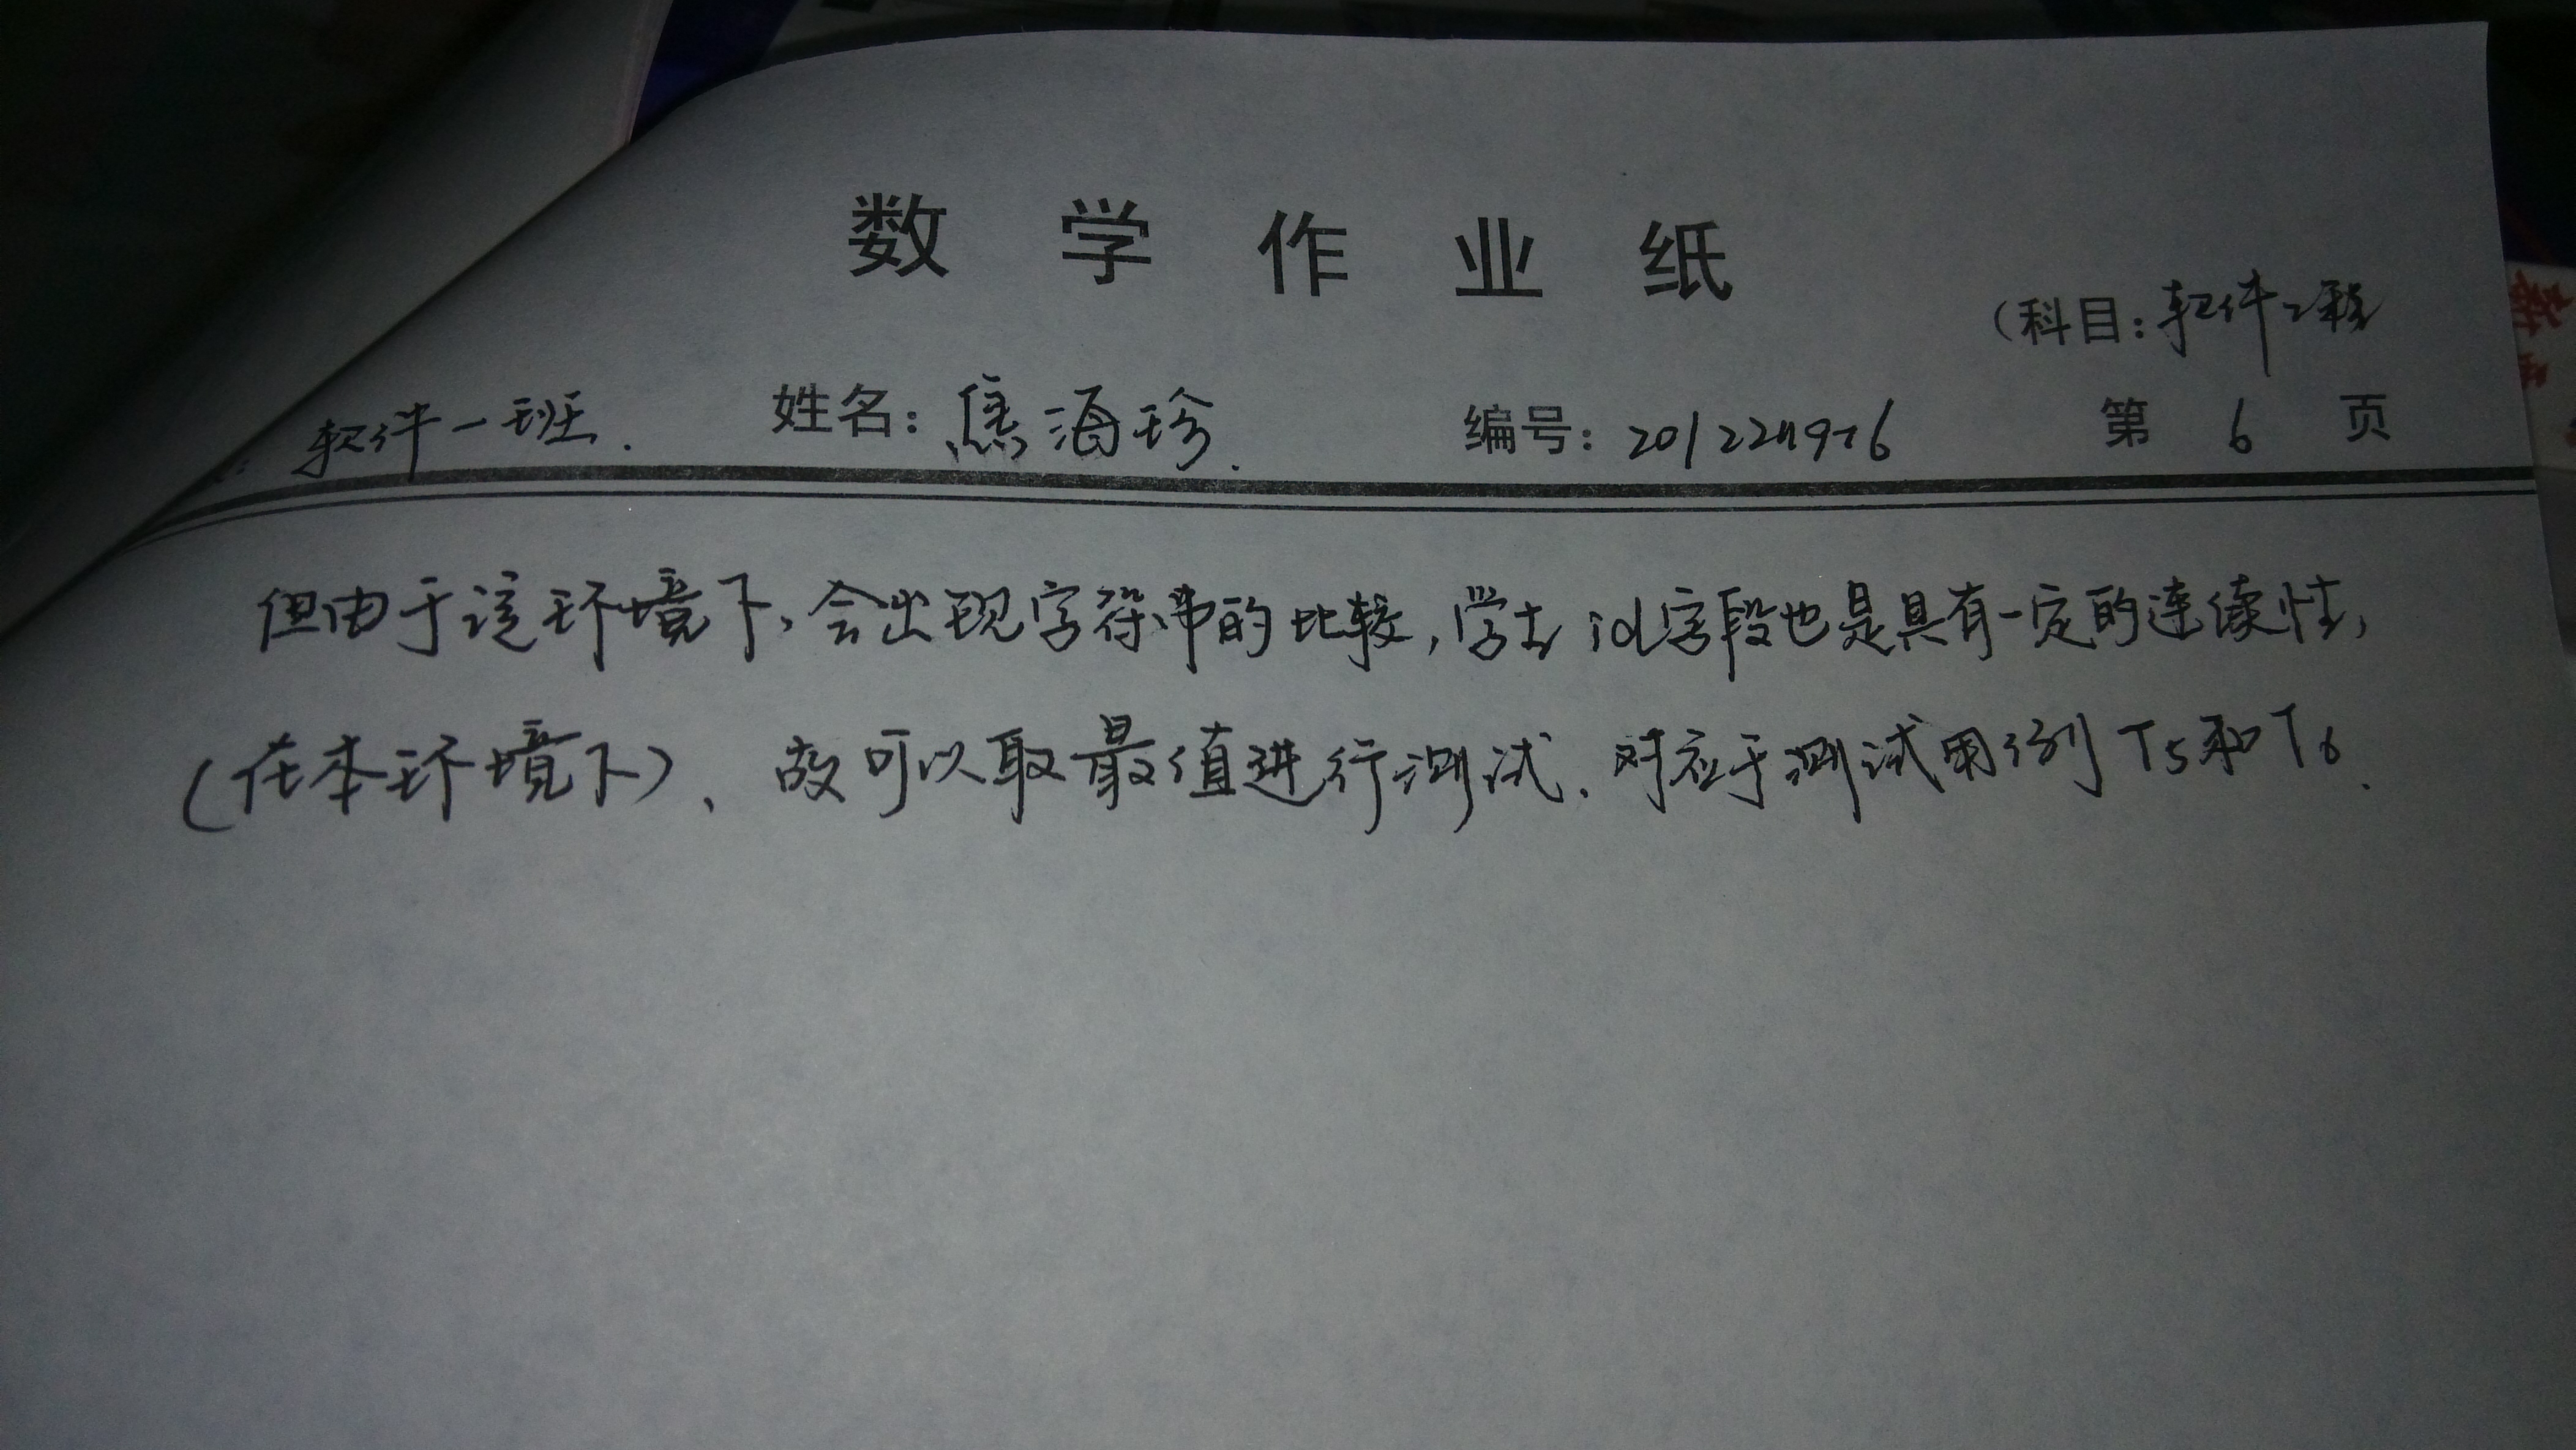 数学作业纸
（科目：软件工程
软件一班. 姓名：焦海珍. 编号： 第 6 页
但由于该环境下，会出现字符串的比较，学生id字段也是具有一定的连续性，
（在本环境下）、故可以取最值进行测试．对应于测试用例T5和T6．